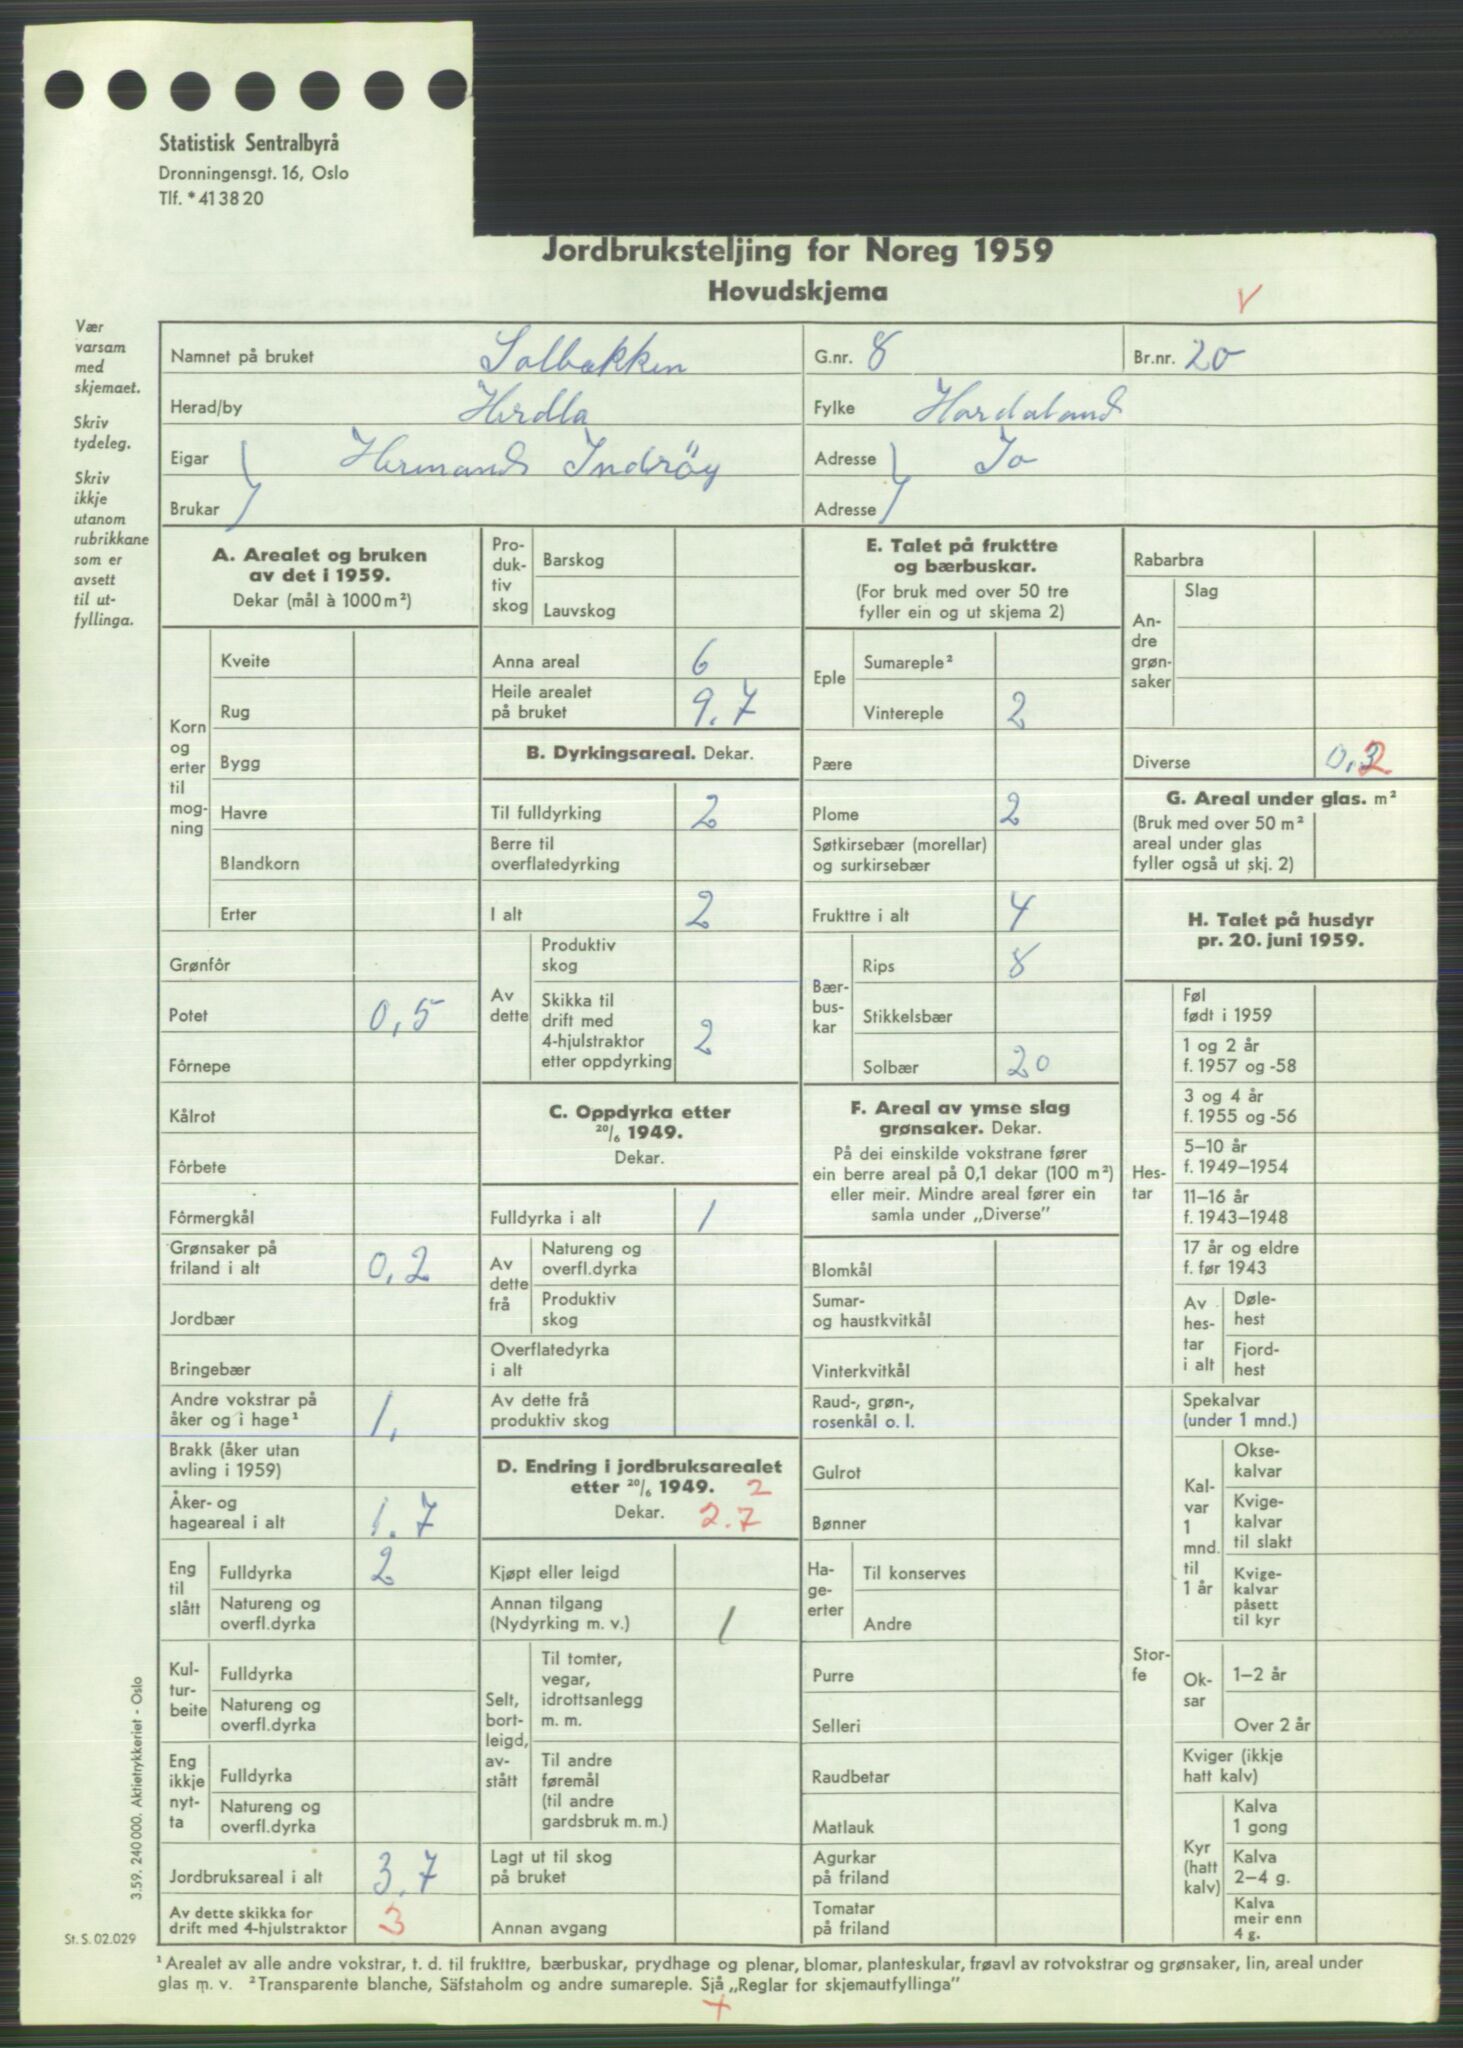 Statistisk Sentralbyrå
Dronningensgt. 16, Oslo
Tlf. *41 38 20
Jordbruksteljing for Noreg 1959
Hovudskjema
V
Vær
varsam
med
skjemaet.
Skriv
tydeleg.
Skriv
ikkje
utanom
rubrikkane
som er
avsett
til ut-
fyllinga.
Namnet på bruket Solbakken G.nr. 8 Br.nr. 20
Herad/by Herdla Fylke Hordaland
Eigar Hermand Indrøy Adresse Io
Brukar Adresse
A. Arealet og bruken
av det i 1959.
Dekar (mål à 1000 m²)
Korn
og
erter
til
mog-
ning
Kveite
Rug
Bygg
Havre
Blandkorn
Erter
Grønfôr
Potet 0,5
Fôrnepe
Kålrot
Fôrbete
Fôrmergkål
Grønsaker på
friland i alt 0,2
Jordbær
Bringebær
Andre vokstrar på
åker og i hage¹ 1,
Brakk (åker utan
avling i 1959)
Åker- og
hageareal i alt 1.7
Eng
til
slått
Fulldyrka 2
Natureng og
overfl.dyrka
Kul-
tur-
beite
Fulldyrka
Natureng og
overfl.dyrka
Eng
ikkje
nyt-
ta
Fulldyrka
Natureng og
overfl.dyrka
Jordbruksareal i alt 3,7
Av dette skikka for
drift med 4-hjulstraktor 3
Pro-
duk-
tiv
skog
Barskog
Lauvskog
Anna areal 6
Heile arealet
på bruket 9.7
B. Dyrkingsareal. Dekar.
Til fulldyrking 2
Berre til
overflatedyrking
I alt 2
Av
dette
Produktiv
skog
Skikka til
drift med
4-hjulstraktor
etter oppdyrking 2
C. Oppdyrka etter
20/6 1949.
Dekar.
Fulldyrka i alt 1
Av
dette
frå
Natureng og
overfl.dyrka
Produktiv
skog
Overflatedyrka
i alt
Av dette frå
produktiv skog
D. Endring i jordbruksarealet
etter 20/6 1949. 2
Dekar. 2.7
Kjøpt eller leigd
Annan tilgang
(Nydyrking m. v.) 1
Selt,
bort-
leigd,
av-
stått
Til tomter,
vegar,
idrottsanlegg
m. m.
Til andre
føremål
(til andre
gardsbruk m. m.)
Lagt ut til skog
på bruket
Annan avgang
E. Talet på frukttre
og bærbuskar.
(For bruk med over 50 tre
fyller ein og ut skjema 2)
Eple
Sumareple²
Vintereple 2
Pære
Plome 2
Søtkirsebær (morellar)
og surkirsebær
Frukttre i alt 4
Bær-
bus-
kar
Rips 8
Stikkelsbær
Solbær 20
F. Areal av ymse slag
grønsaker. Dekar.
På dei einskilde vokstrane fører
ein berre areal på 0,1 dekar (100 m²)
eller meir. Mindre areal fører ein
samla under „Diverse”
Blomkål
Sumar-
og haustkvitkål
Vinterkvitkål
Raud-, grøn-,
rosenkål o. l.
Gulrot
Bønner
Ha-
ge-
erter
Til konserves
Andre
Purre
Selleri
Raudbetar
Matlauk
Agurkar
på friland
Tomatar
på friland
Rabarbra
An-
dre
grøn-
saker
Slag
Diverse 0,2
G. Areal under glas. m²
(Bruk med over 50 m²
areal under glas
fyller også ut skj. 2)
H. Talet på husdyr
pr. 20. juni 1959.
Hes-
tar
Føl
født i 1959
1 og 2 år
f. 1957 og -58
3 og 4 år
f. 1955 og -56
5–10 år
f. 1949–1954
11–16 år
f. 1943–1948
17 år og eldre
f. før 1943
Av
hes-
tar
i alt
Døle-
hest
Fjord-
hest
Stor-
fe
Spekalvar
(under 1 mnd.)
Kal-
var
1
mnd.
til
1 år
Okse-
kalvar
Kvige-
kalvar
til slakt
Kvige-
kalvar
påsett
til kyr
Ok-
sar
1–2 år
Over 2 år
Kviger (ikkje
hatt kalv)
Kyr
(hatt
kalv)
Kalva
1 gong
Kalva
2–4 g.
Kalva
meir enn
4 g.
3.59. 240 000. Aktietrykkeriet - Oslo
St. S. 02.029
¹ Arealet av alle andre vokstrar, t. d. til frukttre, bærbuskar, prydhage og plenar, blomar, planteskular, frøavl av rotvokstrar og grønsaker, lin, areal under
glas m. v. ² Transparente blanche, Säfstaholm og andre sumareple. Sjå „Reglar for skjemautfyllinga”
+